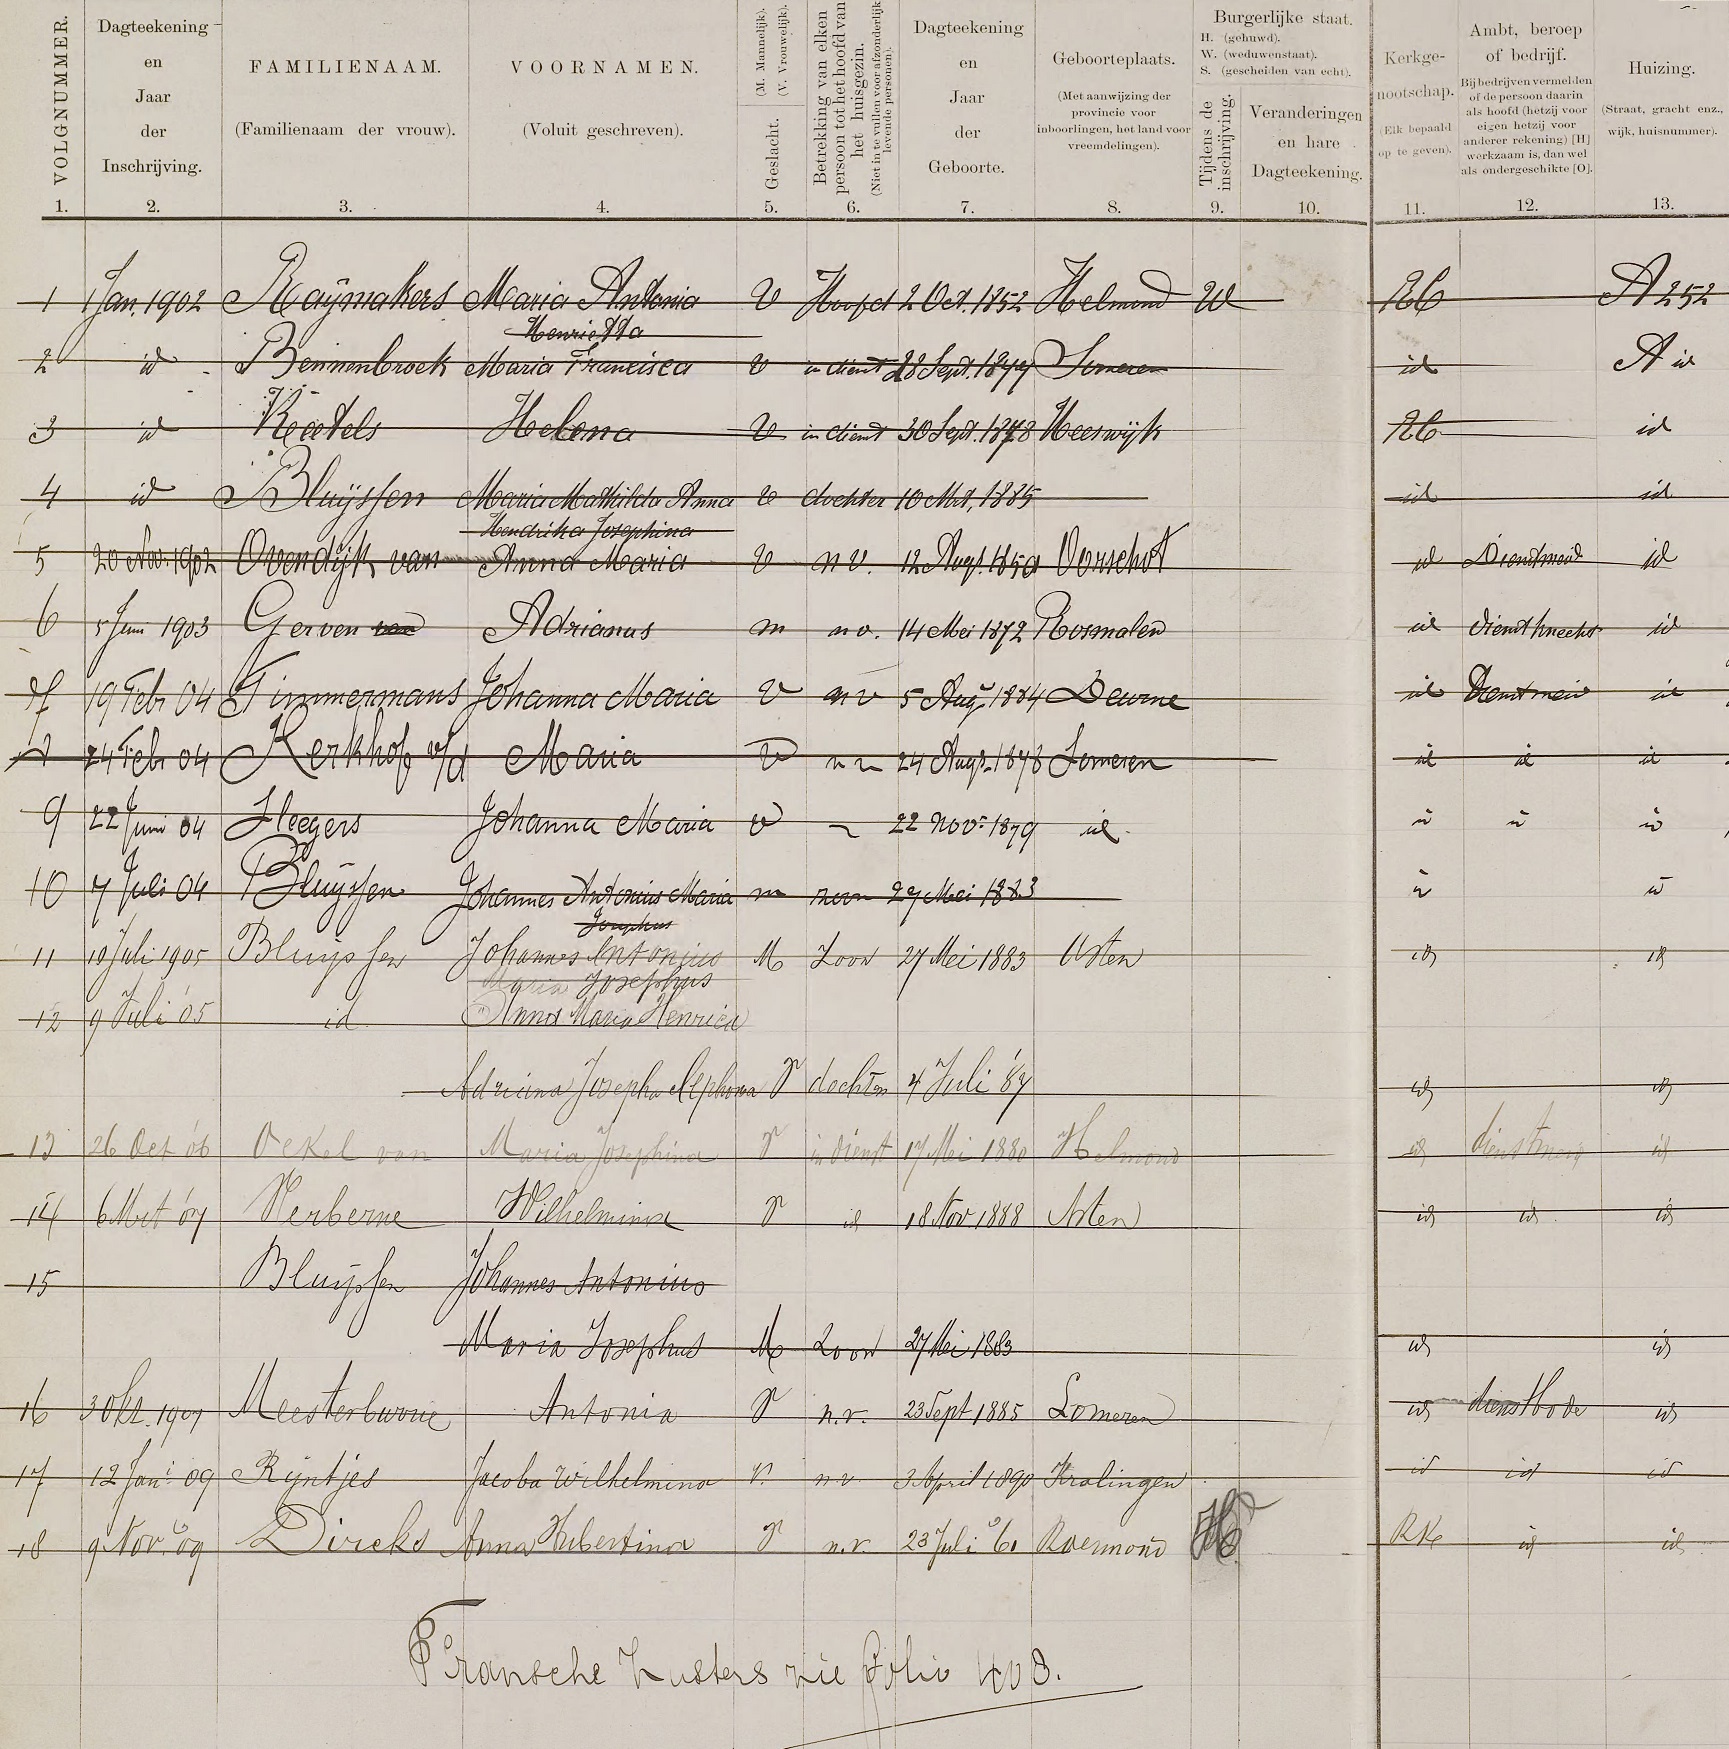 VOLGNUMMER. Dagteekening en Jaar der Inschrijving. FAMILIENAAM. (Familienaam der vrouw). VOORNAMEN. (Voluit geschreven). Geslacht. (M. Mannelijk). (V. Vrouwelijk). Betrekking van elken persoon tot het hoofd van het huisgezin. (Niet in te vullen voor afzonderlijk levende personen). Dagteekening en Jaar der Geboorte. Geboorteplaats. (Met aanwijzing der provincie voor inboorlingen, het land voor vreemdelingen). Burgerlijke staat. H. (gehuwd). W. (weduwenstaat). S. (gescheiden van echt). Tijdens de inschrijving. Veranderingen en hare Dagteekening. Kerkgenootschap. (Elk bepaald op te geven). Ambt, beroep of bedrijf. Bij bedrijven vermelden of de persoon daarin als hoofd (hetzij voor eigen hetzij voor anderer rekening) [H] werkzaam is, dan wel als ondergeschikte [O]. Huizing. (Straat, gracht enz., wijk, huisnummer).
1. 2. 3. 4. 5. 6. 7. 8. 9. 10. 11. 12. 13.
1 1 Jan. 1902 Raijmakers Maria Antonia V Hoofd 2 Oct. 1852 Helmond W RC A 252
Henrietta
2 id Bennenbroek Maria Francisca V in dienst 28 Sept. 1879 Someren id A id
3 id Ketels Helena V in dienst 30 Sept. 1878 Heeswijk RC id
4 id Bluijssen Maria Mathilda Anna V dochter 10 Mrt. 1885 id id
Hendrika Josephina
5 20 Nov. 1902 Ovendijk van Anna Maria V n v. 12 Augs. 1850 Oorschot id Dienstmeid id
6 5 Juni 1903 Gerven van Adrianus m n v. 14 Mei 1872 Rosmalen id dienstknecht id
7 19 Febr 04 Timmermans Johanna Maria V n v 5 Aug 1884 Deurne id Dienstmeid id
24 Febr 04 Kerkhof v/d Maria V 24 Augs. 1878 Someren id id id
9 22 Juni 04 Sleegers Johanna Maria V 22 Nov. 1879 id
10 7 Juli 04 Bluijssen Johannes Antonius Maria m zoon 27 Mei 1883
Josephus
11 10 Juli 1905 Bluijssen Johannes Antonius M Zoon 27 Mei 1883 Asten id id
Maria Josephus
12 9 Juli '05 id Anna Maria Henrica
Adriana Josepha Alphonsa V dochter 4 Juli '87 id id
13 26 Oct '06 Oekel van Maria Josephina V in dienst 17 Mei 1880 Helmond id dienstmeid id
14 6 Mrt '07 Verberne Wilhelmina V id 18 Nov 1888 Asten id id id
15 Bluijssen Johannes Antonius
Maria Josephus M Zoon 27 Mei 1883 id id
16 3 Okt. 1907 Meesterburrie Antonia V n.v. 23 Sept 1885 Someren id dienstbode id
17 12 Jani 09 Rijntjes Jacoba Wilhelmina V. n.v. 3 April 1890 Kralingen id id id
18 9 Nov. 09 Dircks Anna Hubertina V n.v. 23 Juli 61 Roermond RK id id
Fransche Zusters zie folio 403.